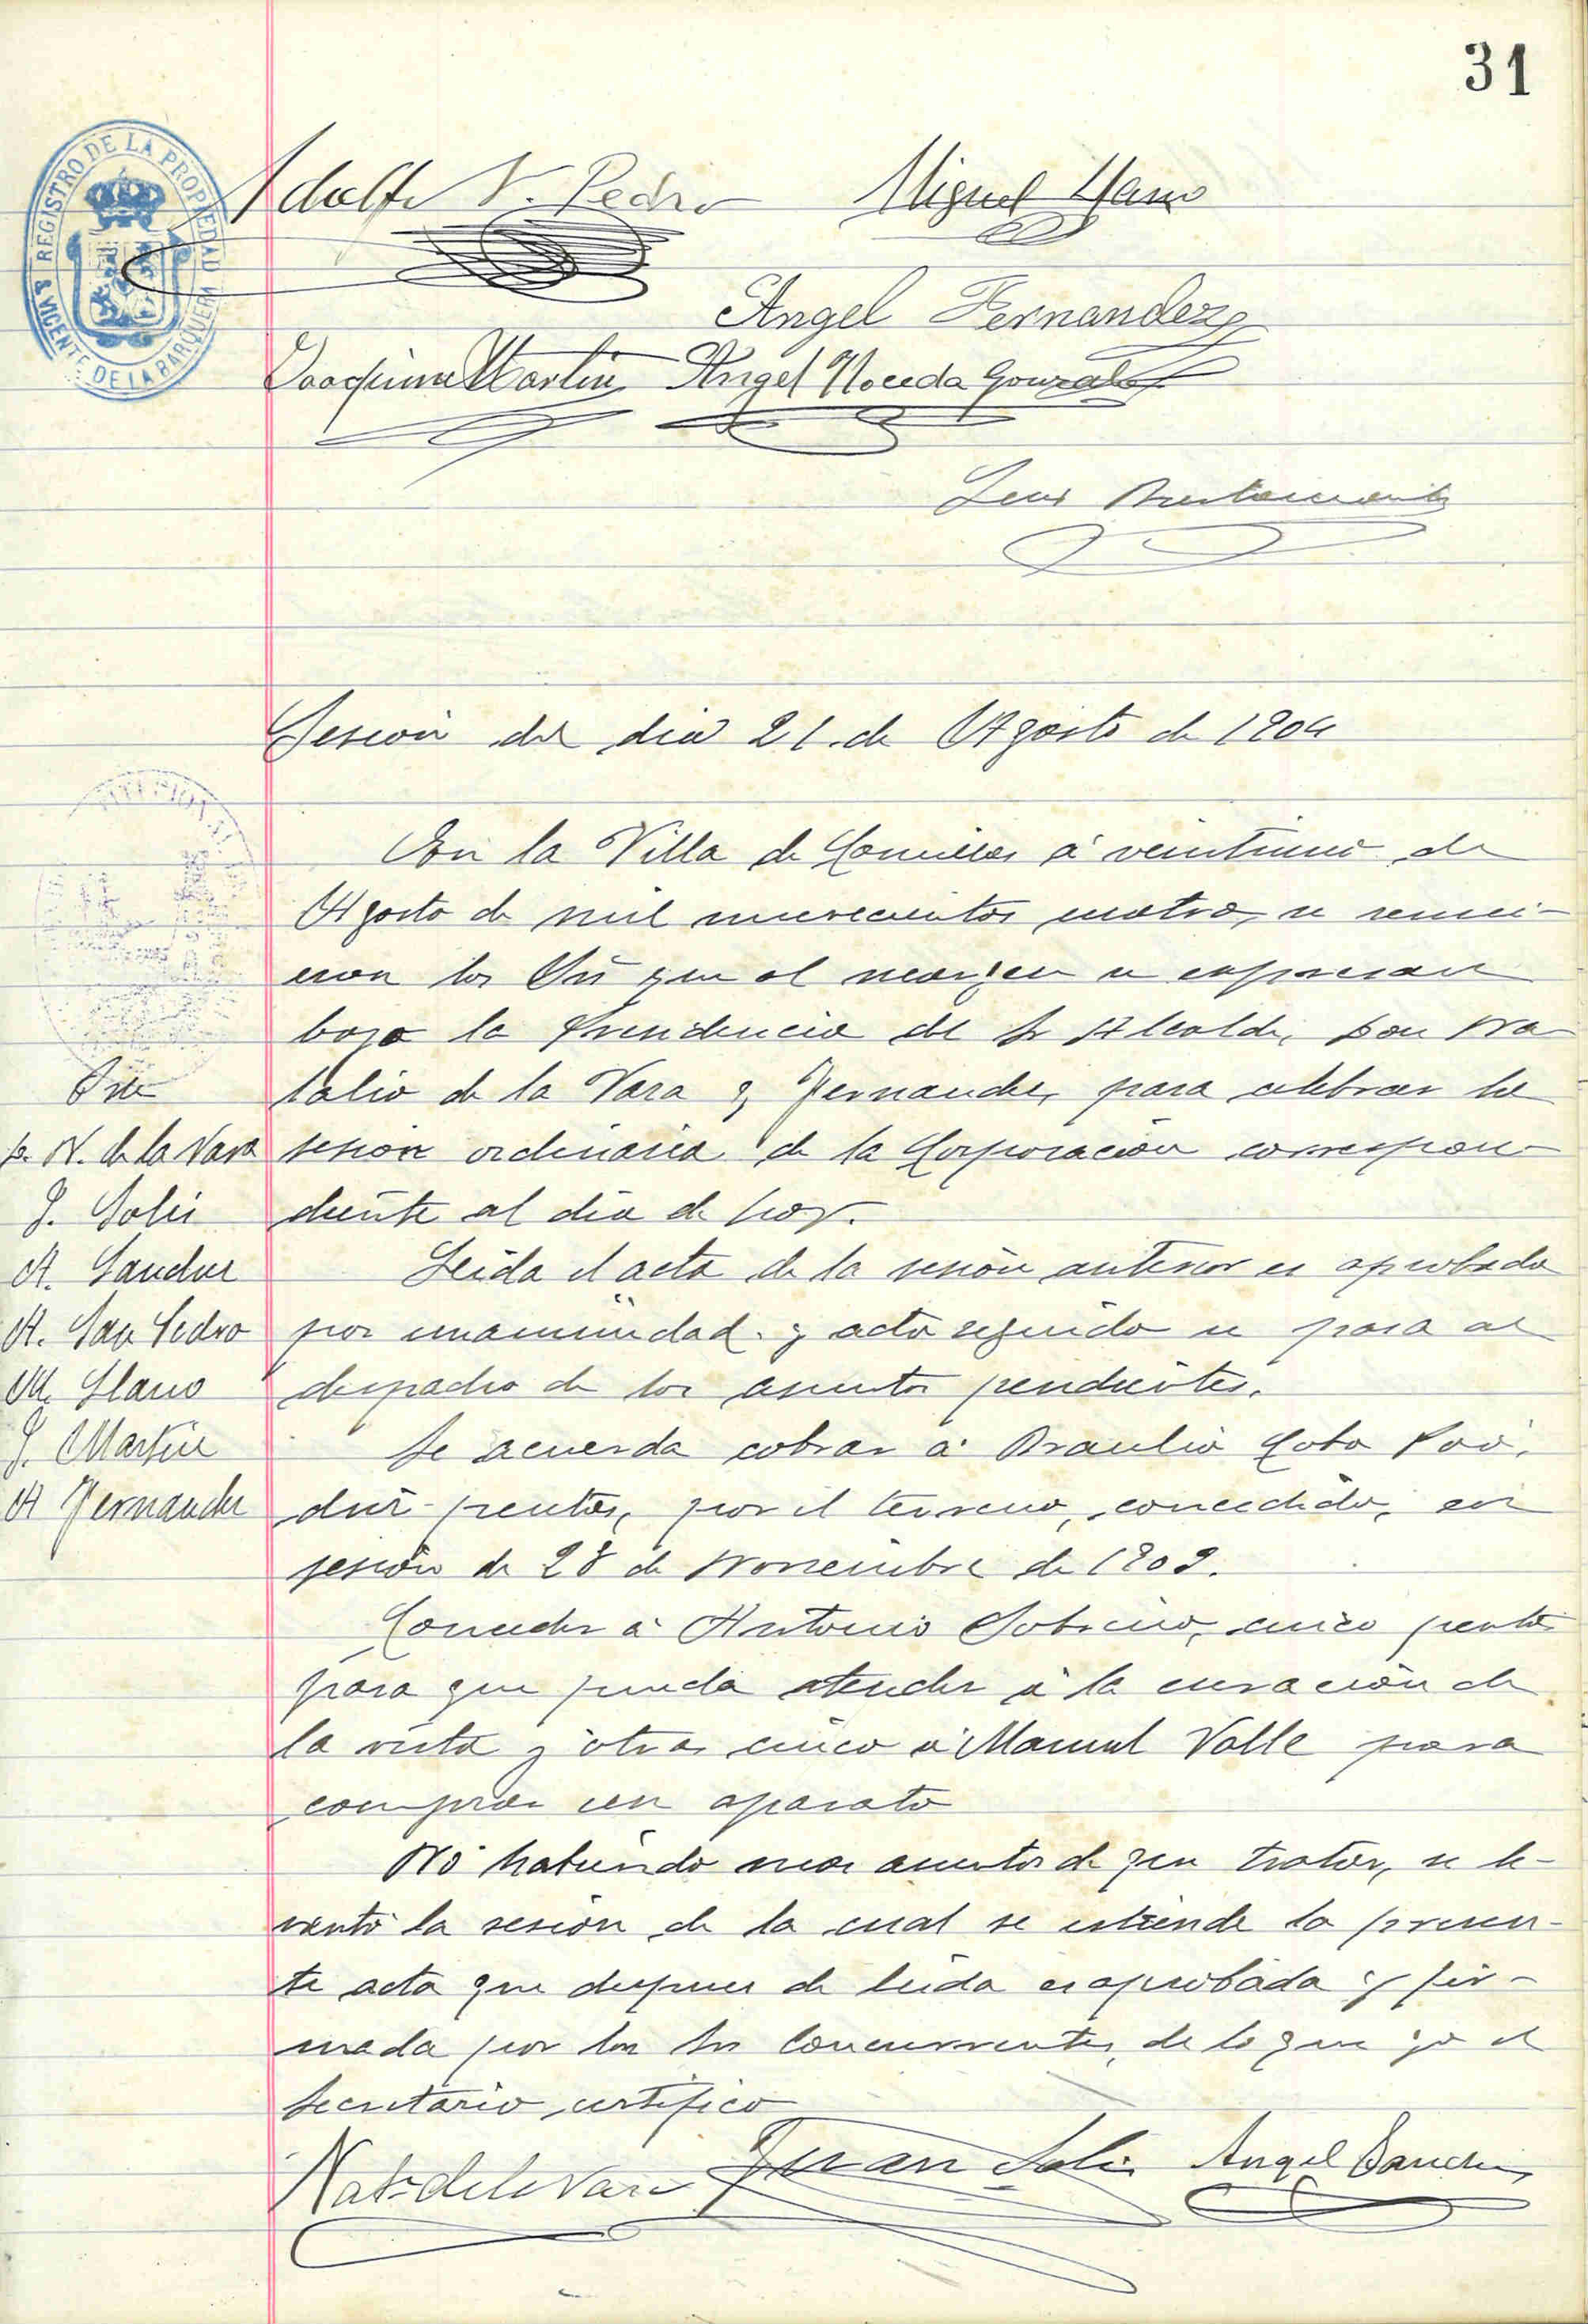 31
REGISTRO DE LA PROPIEDAD
VICENTE DE LA BARQUERA
Adolfo S. Pedro Miguel Llano
Angel Fernandez
Joaquin Martin Angel Noceda Gonzalez
Luis Bustamante
Sesión del dia 21 de Agosto de 1904
En la Villa de Comillas á veintiuno de
Agosto de mil novecientos cuatro, se reuni-
eron los Srs que al margen se expresan
bajo la Presidencia del Sr Alcalde, Don Na-
talio de la Vara y Fernandez, para celebrar la
sesion ordinaria de la Corporación correspon-
diente al dia de hoy.
Leida el acta de la sesión anterior es aprobada
por unanimidad y acto seguido se pasa al
despacho de los asuntos pendientes.
Se acuerda cobrar á Braulio Coto Poo,
diez pesetas, por el terreno, concedido, en
sesión de 28 de Noviembre de 1903.
Conceder á Antonio Sobrino, cinco pesetas
para que pueda atender á la curación de
la vista y otras cinco á Manuel Valle para
comprar un aparato
No habiendo mas asuntos de que tratar, se le-
vantó la sesión de la cual se estiende la presen-
te acta que despues de leida es aprobada y fir-
mada por los Srs Concurrentes, de lo que yo el
Secretario certifico
Pste
D. N. de la Vara
J. Solis
A. Sanchez
A. San Pedro
M. Llano
J. Martin
A Fernandez
Nat. de la Vara Juan Solis Angel Sanchez